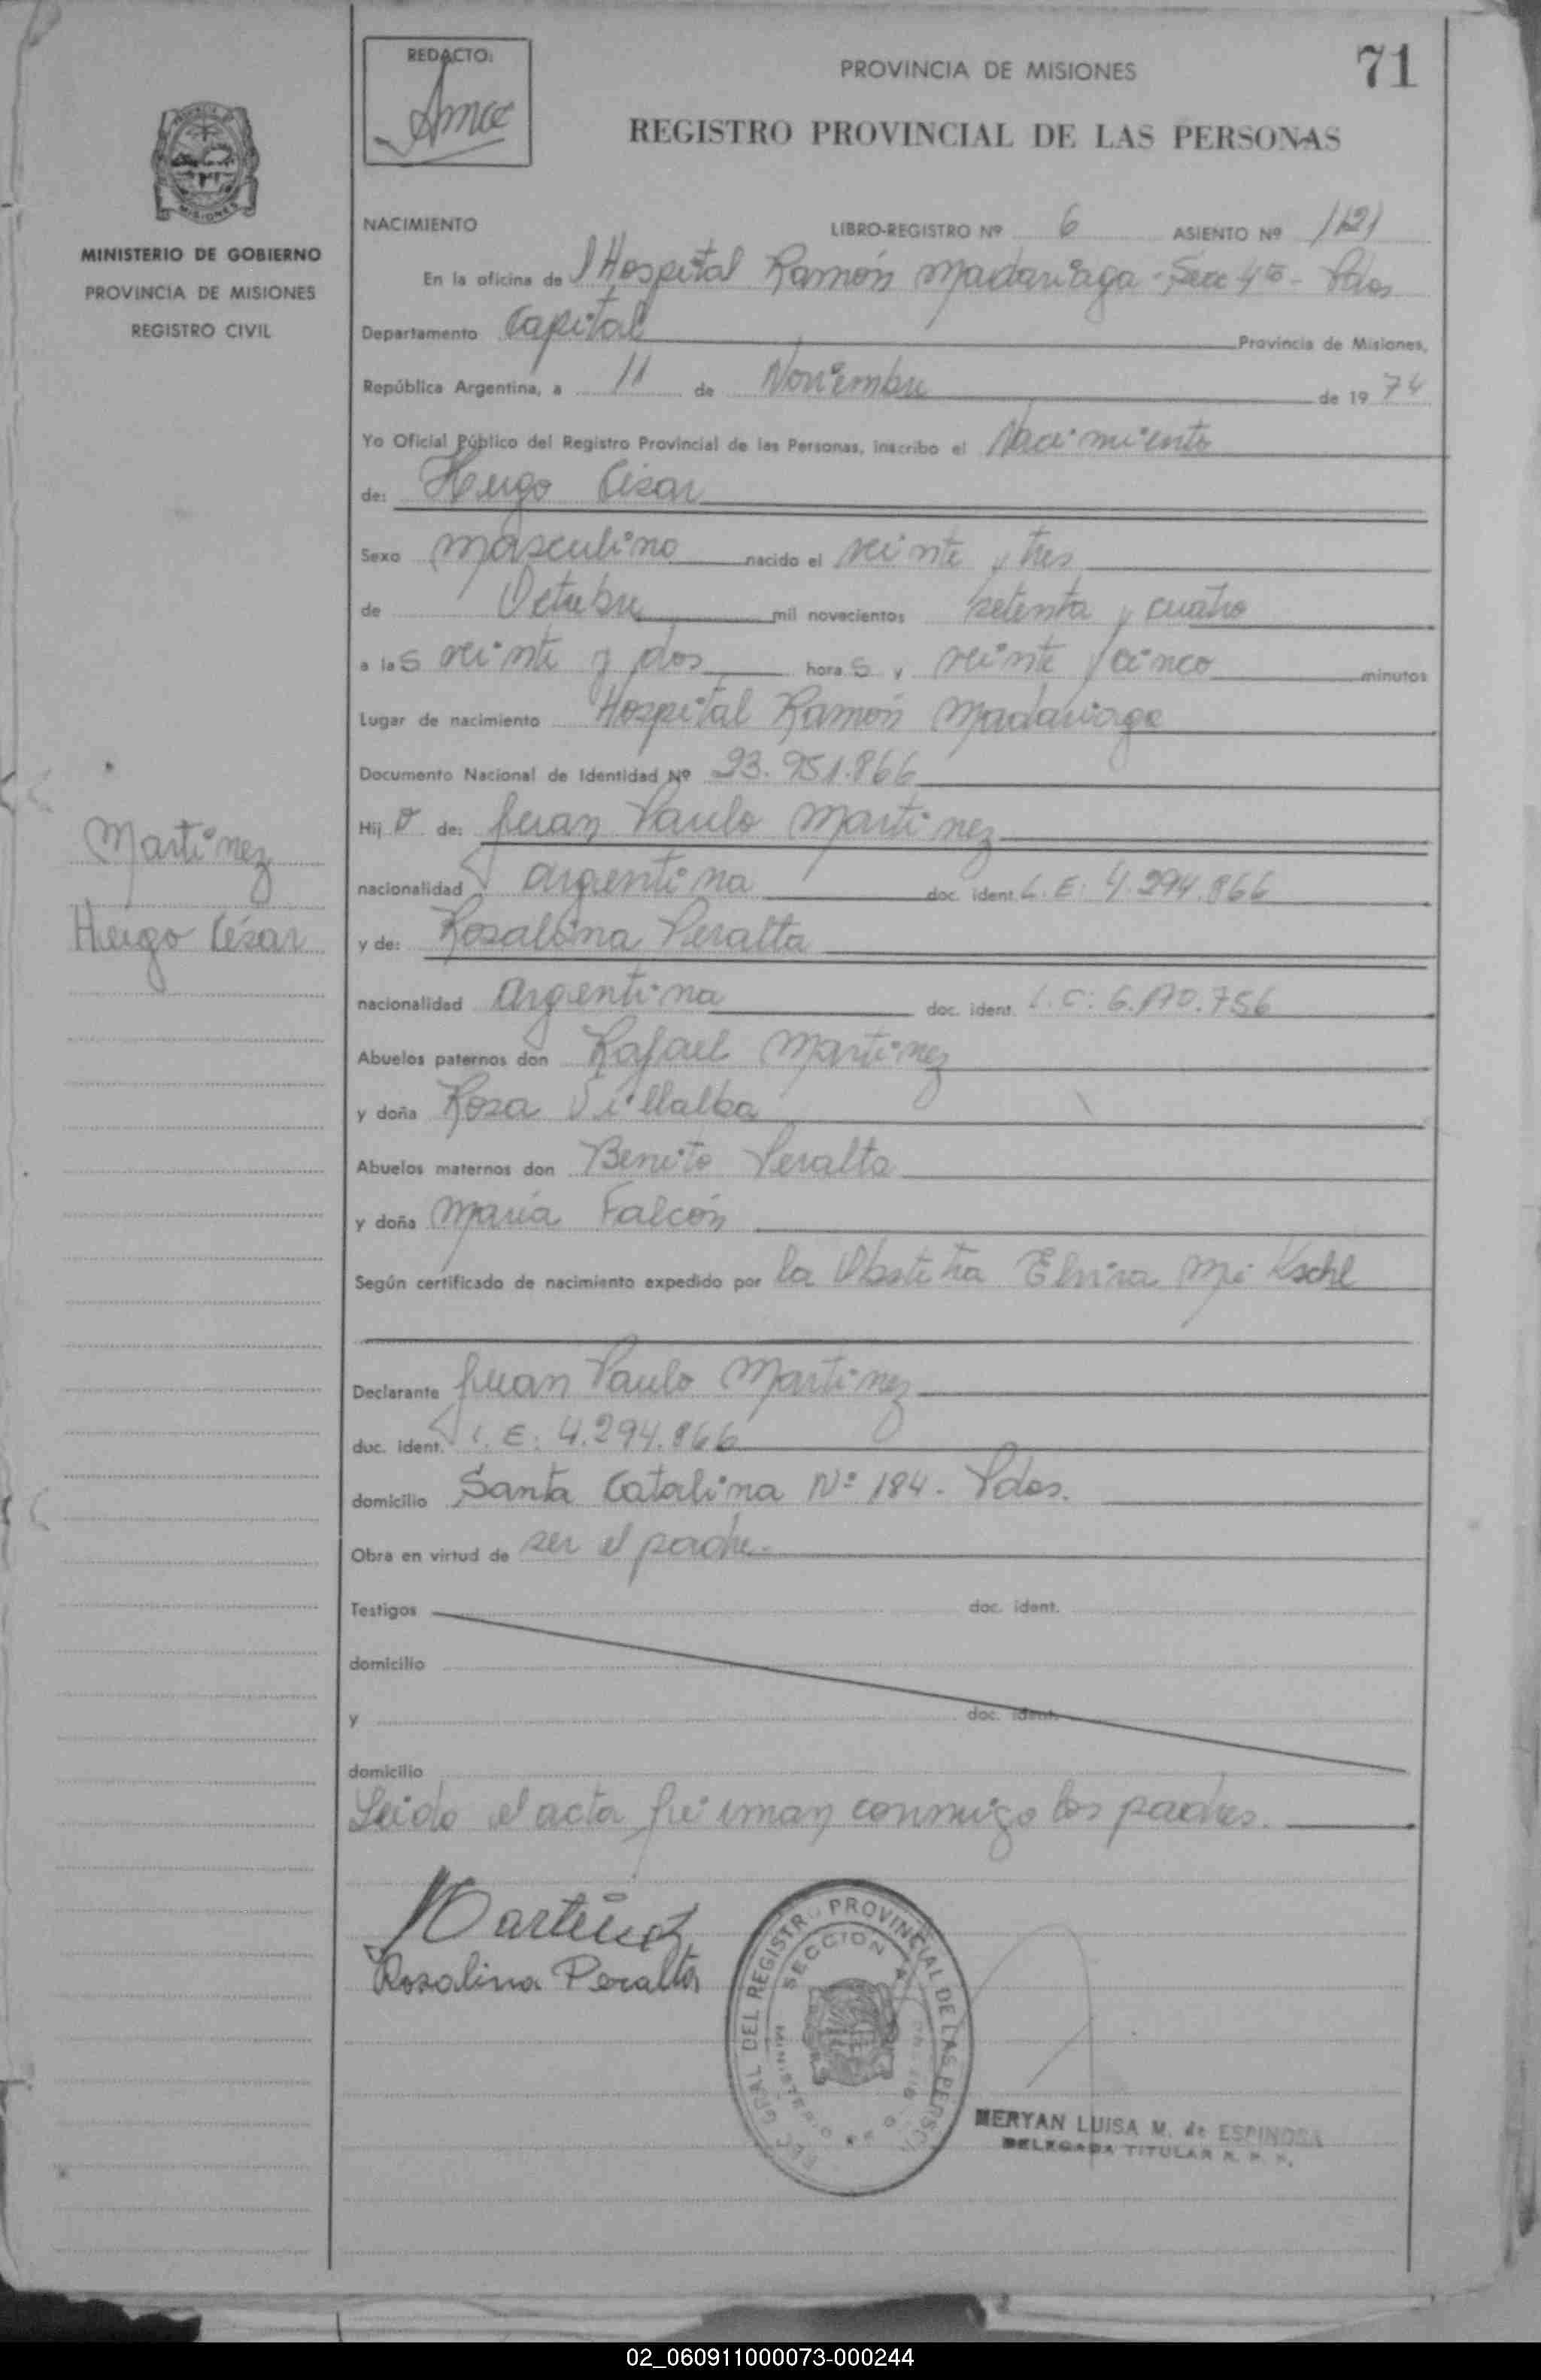 REDACTO:
PROVINCIA DE MISIONES
71
REGISTRO PROVINCIAL DE LAS PERSONAS
MISIONES
MINISTERIO DE GOBIERNO
PROVINCIA DE MISIONES
REGISTRO CIVIL
NACIMIENTO LIBRO-REGISTRO Nº 6 ASIENTO Nº
En la oficina de l Hospital Ramón Madariaga - Secc 4ta - Pdas
Departamento Capital Provincia de Misiones,
República Argentina, a 11 de Noviembre de 19 74
Yo Oficial Público del Registro Provincial de las Personas, inscribo el Nacimiento
de: Hugo César
Sexo masculino nacido el veinte y tres
de Octubre mil novecientos setenta y cuatro
a las veinte y dos horas y veinte y cinco minutos
Lugar de nacimiento Hospital Ramón Madariaga
Documento Nacional de Identidad Nº 23.951.866
Hijo de: Juan Paulo Martinez
nacionalidad argentina doc. ident. L.E: 4.294.866
y de: Rosalina Peralta
nacionalidad argentina doc. ident. L.C: 6.170.756
Abuelos paternos don Rafael Martinez
y doña Rosa Villalba
Abuelos maternos don Benito Peralta
y doña María Falcón
Según certificado de nacimiento expedido por la Obstetra Elvira Mikschl
Declarante Juan Paulo Martinez
doc. ident. L.E: 4.294.866
domicilio Santa Catalina Nº 184. Pdas.
Obra en virtud de ser el padre.
Testigos doc. ident.
domicilio
y doc. ident.
domicilio
Leido el acta firman conmigo los padres.
Martinez
Hugo César
Martinez
Rosalina Peralta
GRAL DEL REGISTRO PROVINCIAL DE LAS PERSO
SECCION 4
MINISTERIO
MERYAN LUISA M. de ESPINOSA
DELEGADA TITULAR R. P. P.
02_060911000073-000244